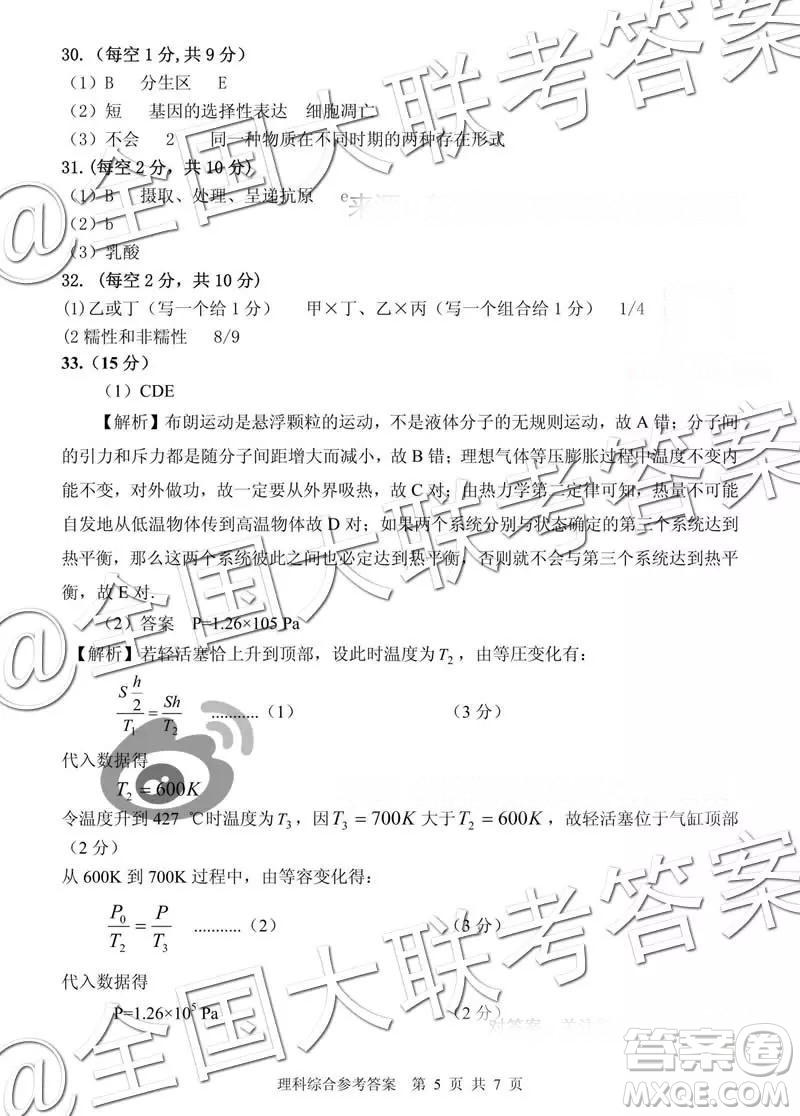 30.（每空1分,共9分）
（1）B 分生区 E
（2）短 基因的选择性表达 细胞凋亡
（3）不会 2 同一种物质在不同时期的两种存在形式
31.(每空2分，共10分)
（1）B 摄取、处理、呈递抗原 e
（2）b
（3）乳酸
32. (每空2分，共10分)
(1)乙或丁（写一个给1分） 甲×丁、乙×丙（写一个组合给1分） 1/4
(2 糯性和非糯性 8/9
33.（15分）
（1）CDE
【解析】布朗运动是悬浮颗粒的运动，不是液体分子的无规则运动，故A错；分子间
的引力和斥力都是随分子间距增大而减小，故B错；理想气体等压膨胀过程中温度不变内
能不变，对外做功，故一定要从外界吸热，故C对；由热力学第二定律可知，热量不可能
自发地从低温物体传到高温物体故D对；如果两个系统分别与状态确定的第三个系统达到
热平衡，那么这两个系统彼此之间也必定达到热平衡，否则就不会与第三个系统达到热平
衡，故E对.
（2）答案 P=1.26×105 Pa
【解析】若轻活塞恰上升到顶部，设此时温度为T₂，由等压变化有：
S h/2 / T₁ = Sh / T₂ ...........（1） （3分）
代入数据得
T₂ = 600K
令温度升到427 ℃时温度为T₃，因T₃ = 700K大于T₂ = 600K，故轻活塞位于气缸顶部
（2分）
从600K到700K过程中，由等容变化得：
P₀ / T₂ = P / T₃ ...........（2） （3分）
代入数据得
P=1.26×10⁵ Pa （2分）
理科综合参考答案 第 5 页 共 7 页
@全国大联考答案
@全国大联考答案
@全国大联考答案
答案卷
MXQE.COM